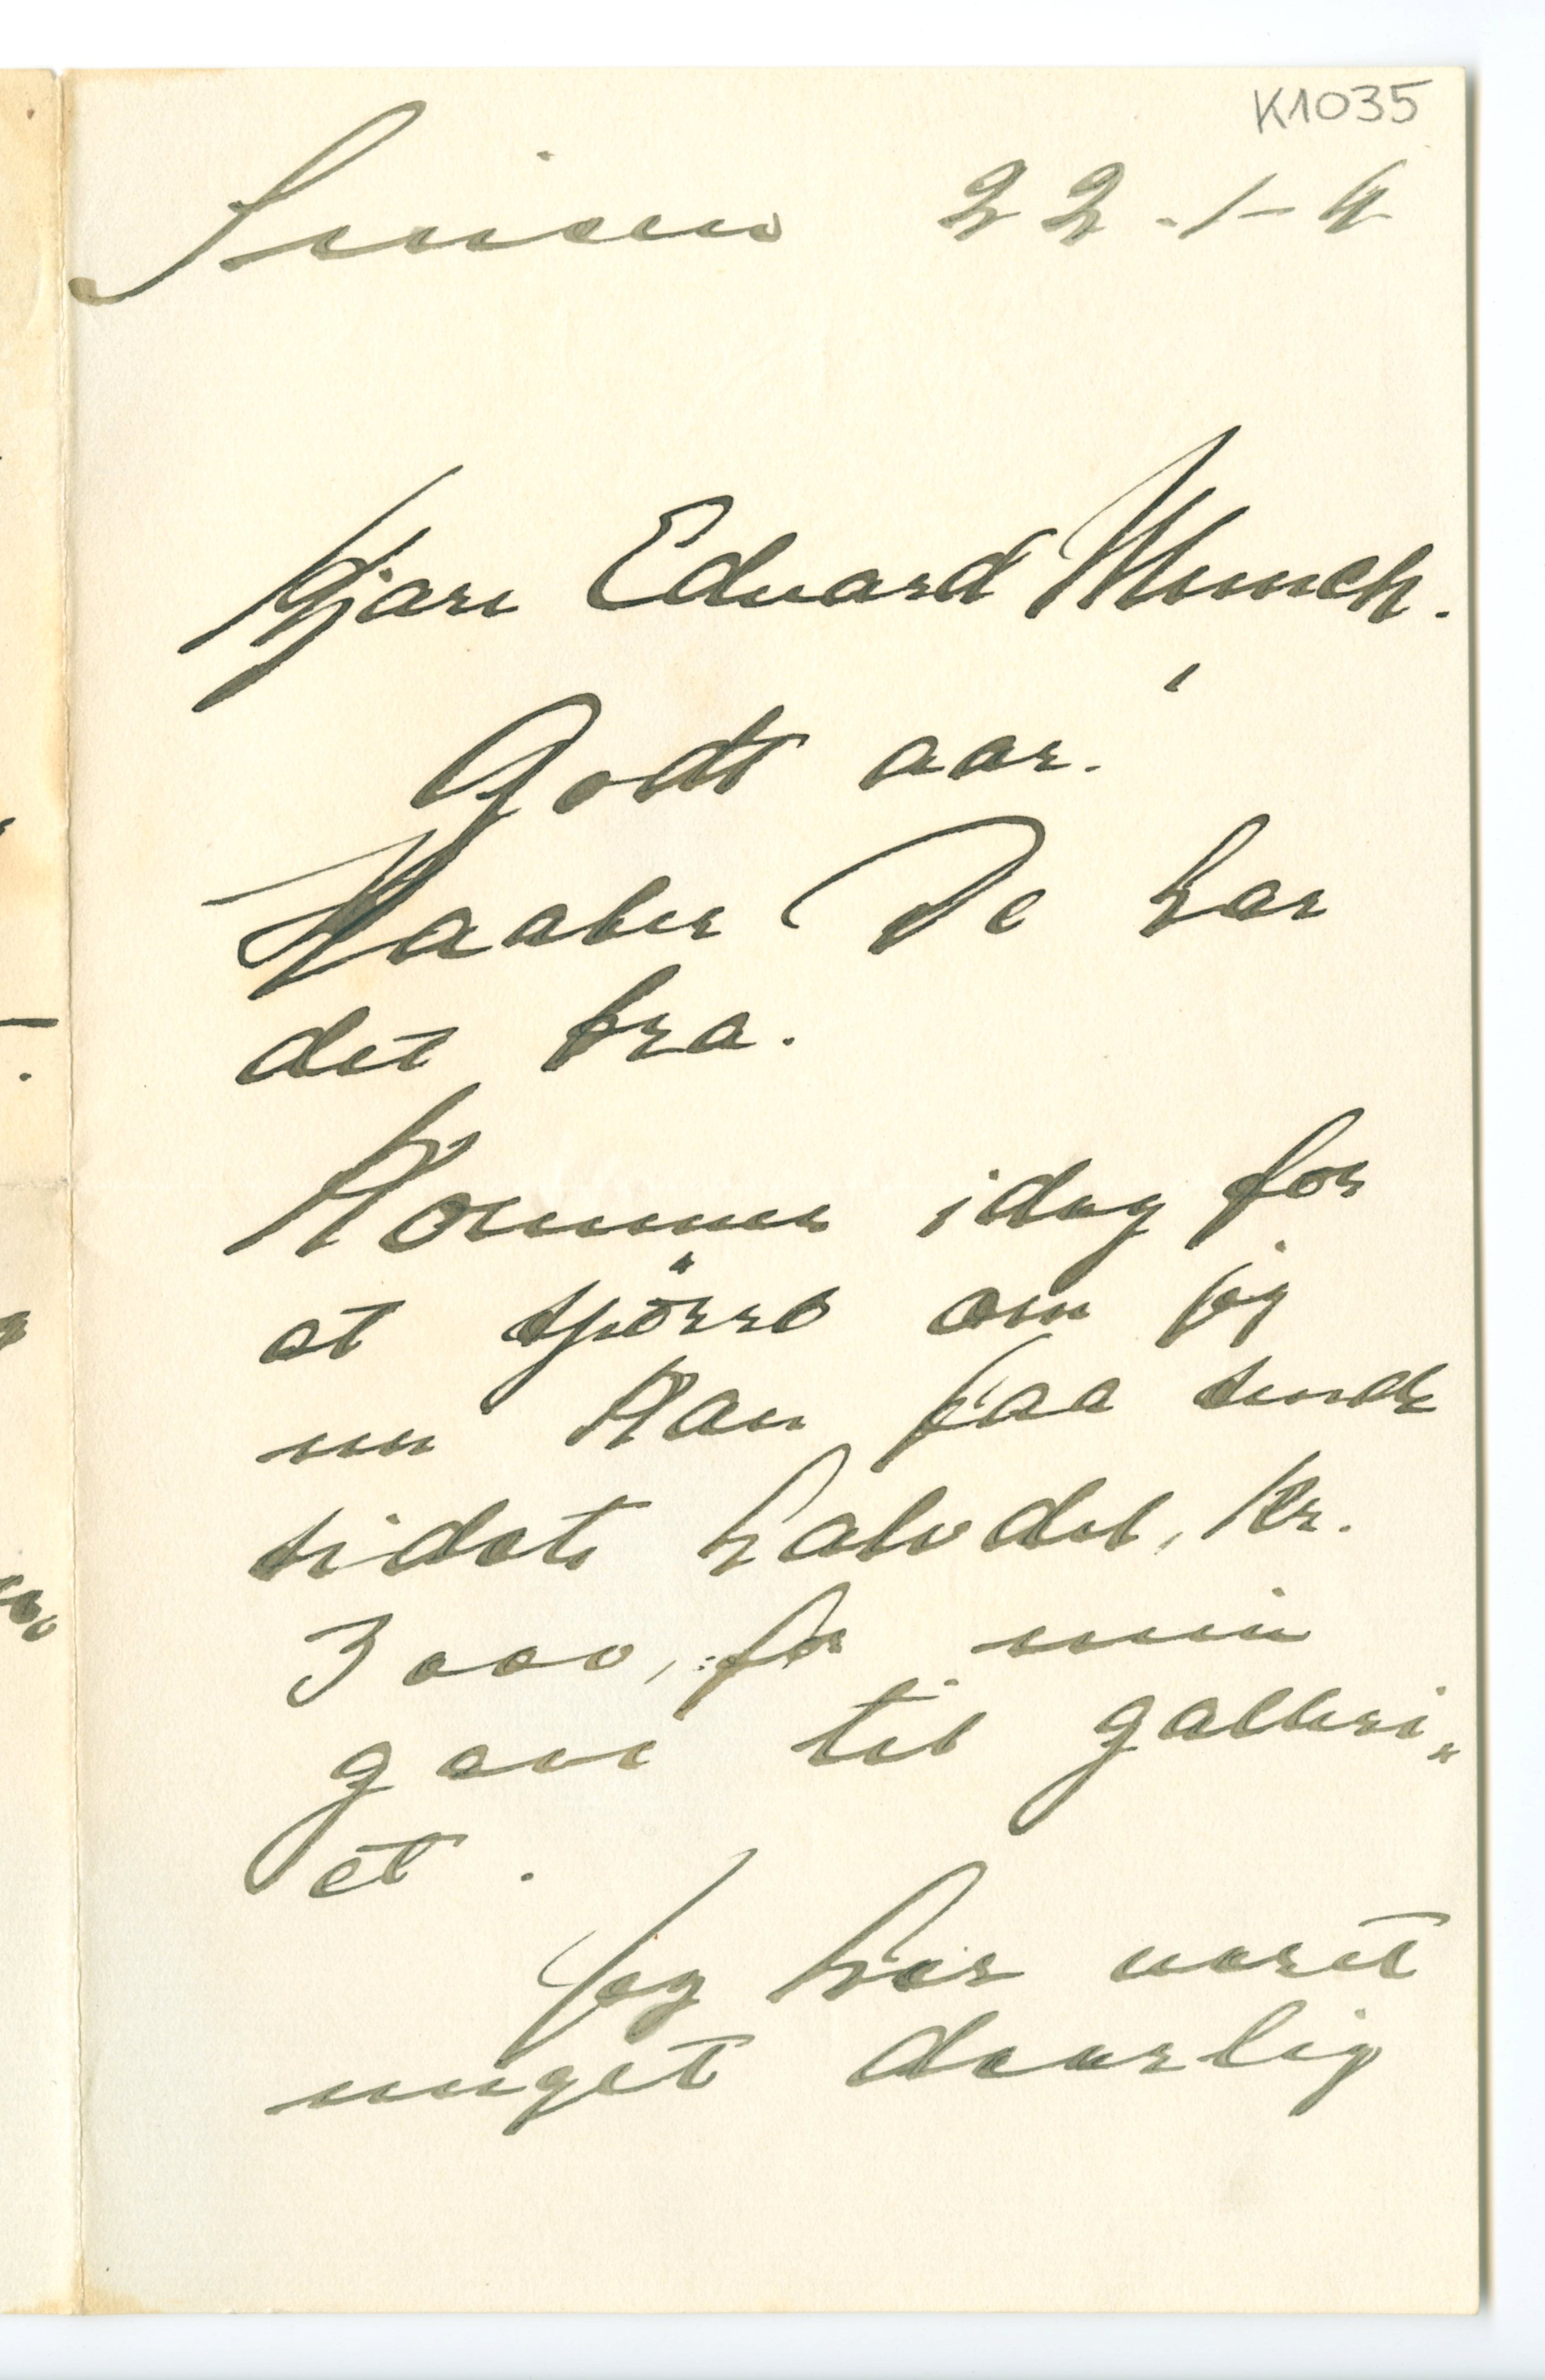 K1035
22-1-4
Kjære Edvard Munch.
Godt aar.
Haaber De har
det bra.
Kommer idag for
at spörre om jeg
nu kan faa sende
sidste halvdel, Kr.
3000, for min
gave til galleri„
et.
Jeg har været
meget daarlig